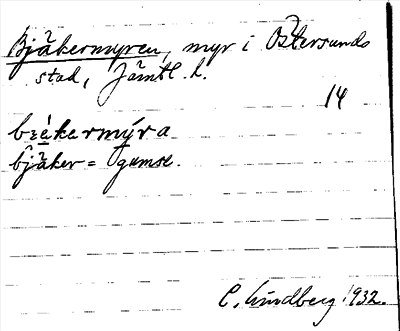 Bjäkermyren, myr i Östersunds
stad, Jämtl. l.
14
bjäker = gumse.
C. Lindberg 1932.